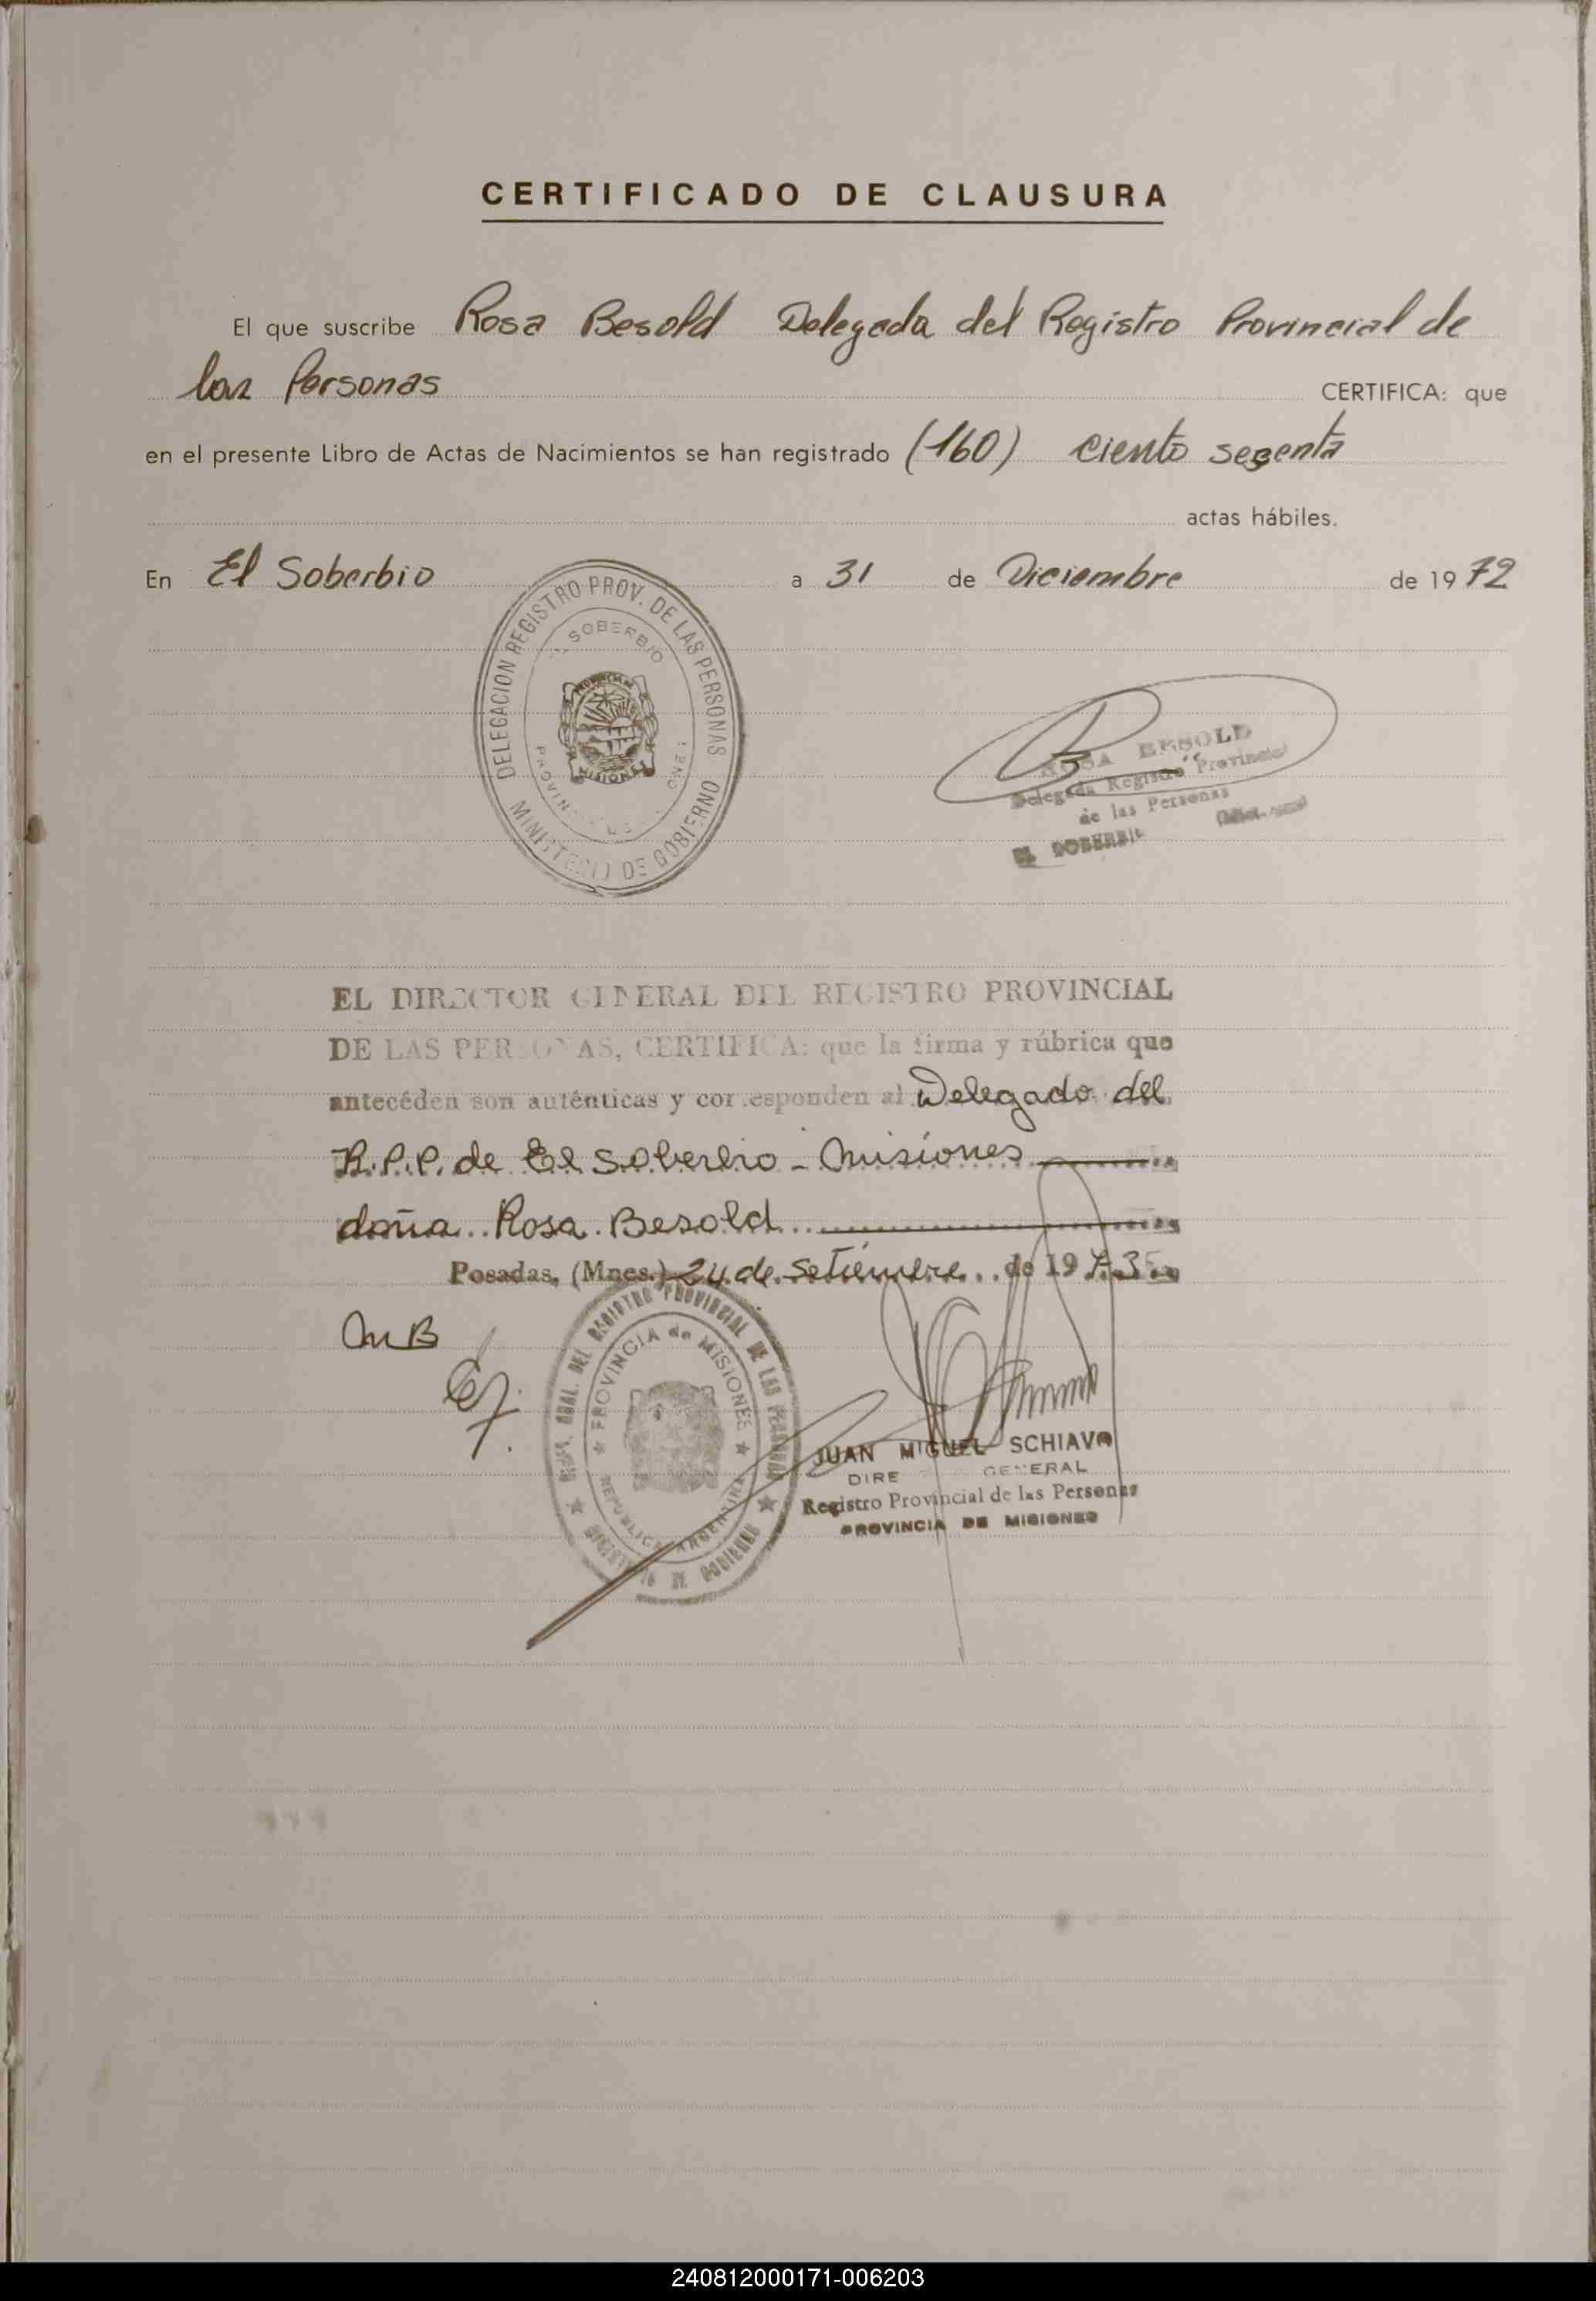 CERTIFICADO DE CLAUSURA
El que suscribe Rosa Besold Delegada del Registro Provincial de
las Personas CERTIFICA: que
en el presente Libro de Actas de Nacimientos se han registrado (160) ciento sesenta
actas hábiles.
En El Soberbio a 31 de Diciembre de 1972
DELEGACION REGISTRO PROV. DE LAS PERSONAS
MINISTERIO DE GOBIERNO
SOBERBIO
MISIONES
ROSA BESOLD
Delegada Registro Provincial
de las Personas
EL SOBERBIO
EL DIRECTOR GENERAL DEL REGISTRO PROVINCIAL
DE LAS PERSONAS, CERTIFICA: que la firma y rúbrica que
antecéden son auténticas y corresponden al Delegado del
R.P.P. de El Soberbio - Misiones
doña Rosa Besold
Posadas, (Mnes.) 24 de Setiembre de 1973
MB
GRAL. DEL REGISTRO PROVINCIAL DE LAS PERSONAS
PROVINCIA de MISIONES
REPUBLICA ARGENTINA
MINISTERIO DE GOBIERNO
JUAN MIGUEL SCHIAVO
DIRE GENERAL
Registro Provincial de las Personas
PROVINCIA DE MISIONES
240812000171-006203